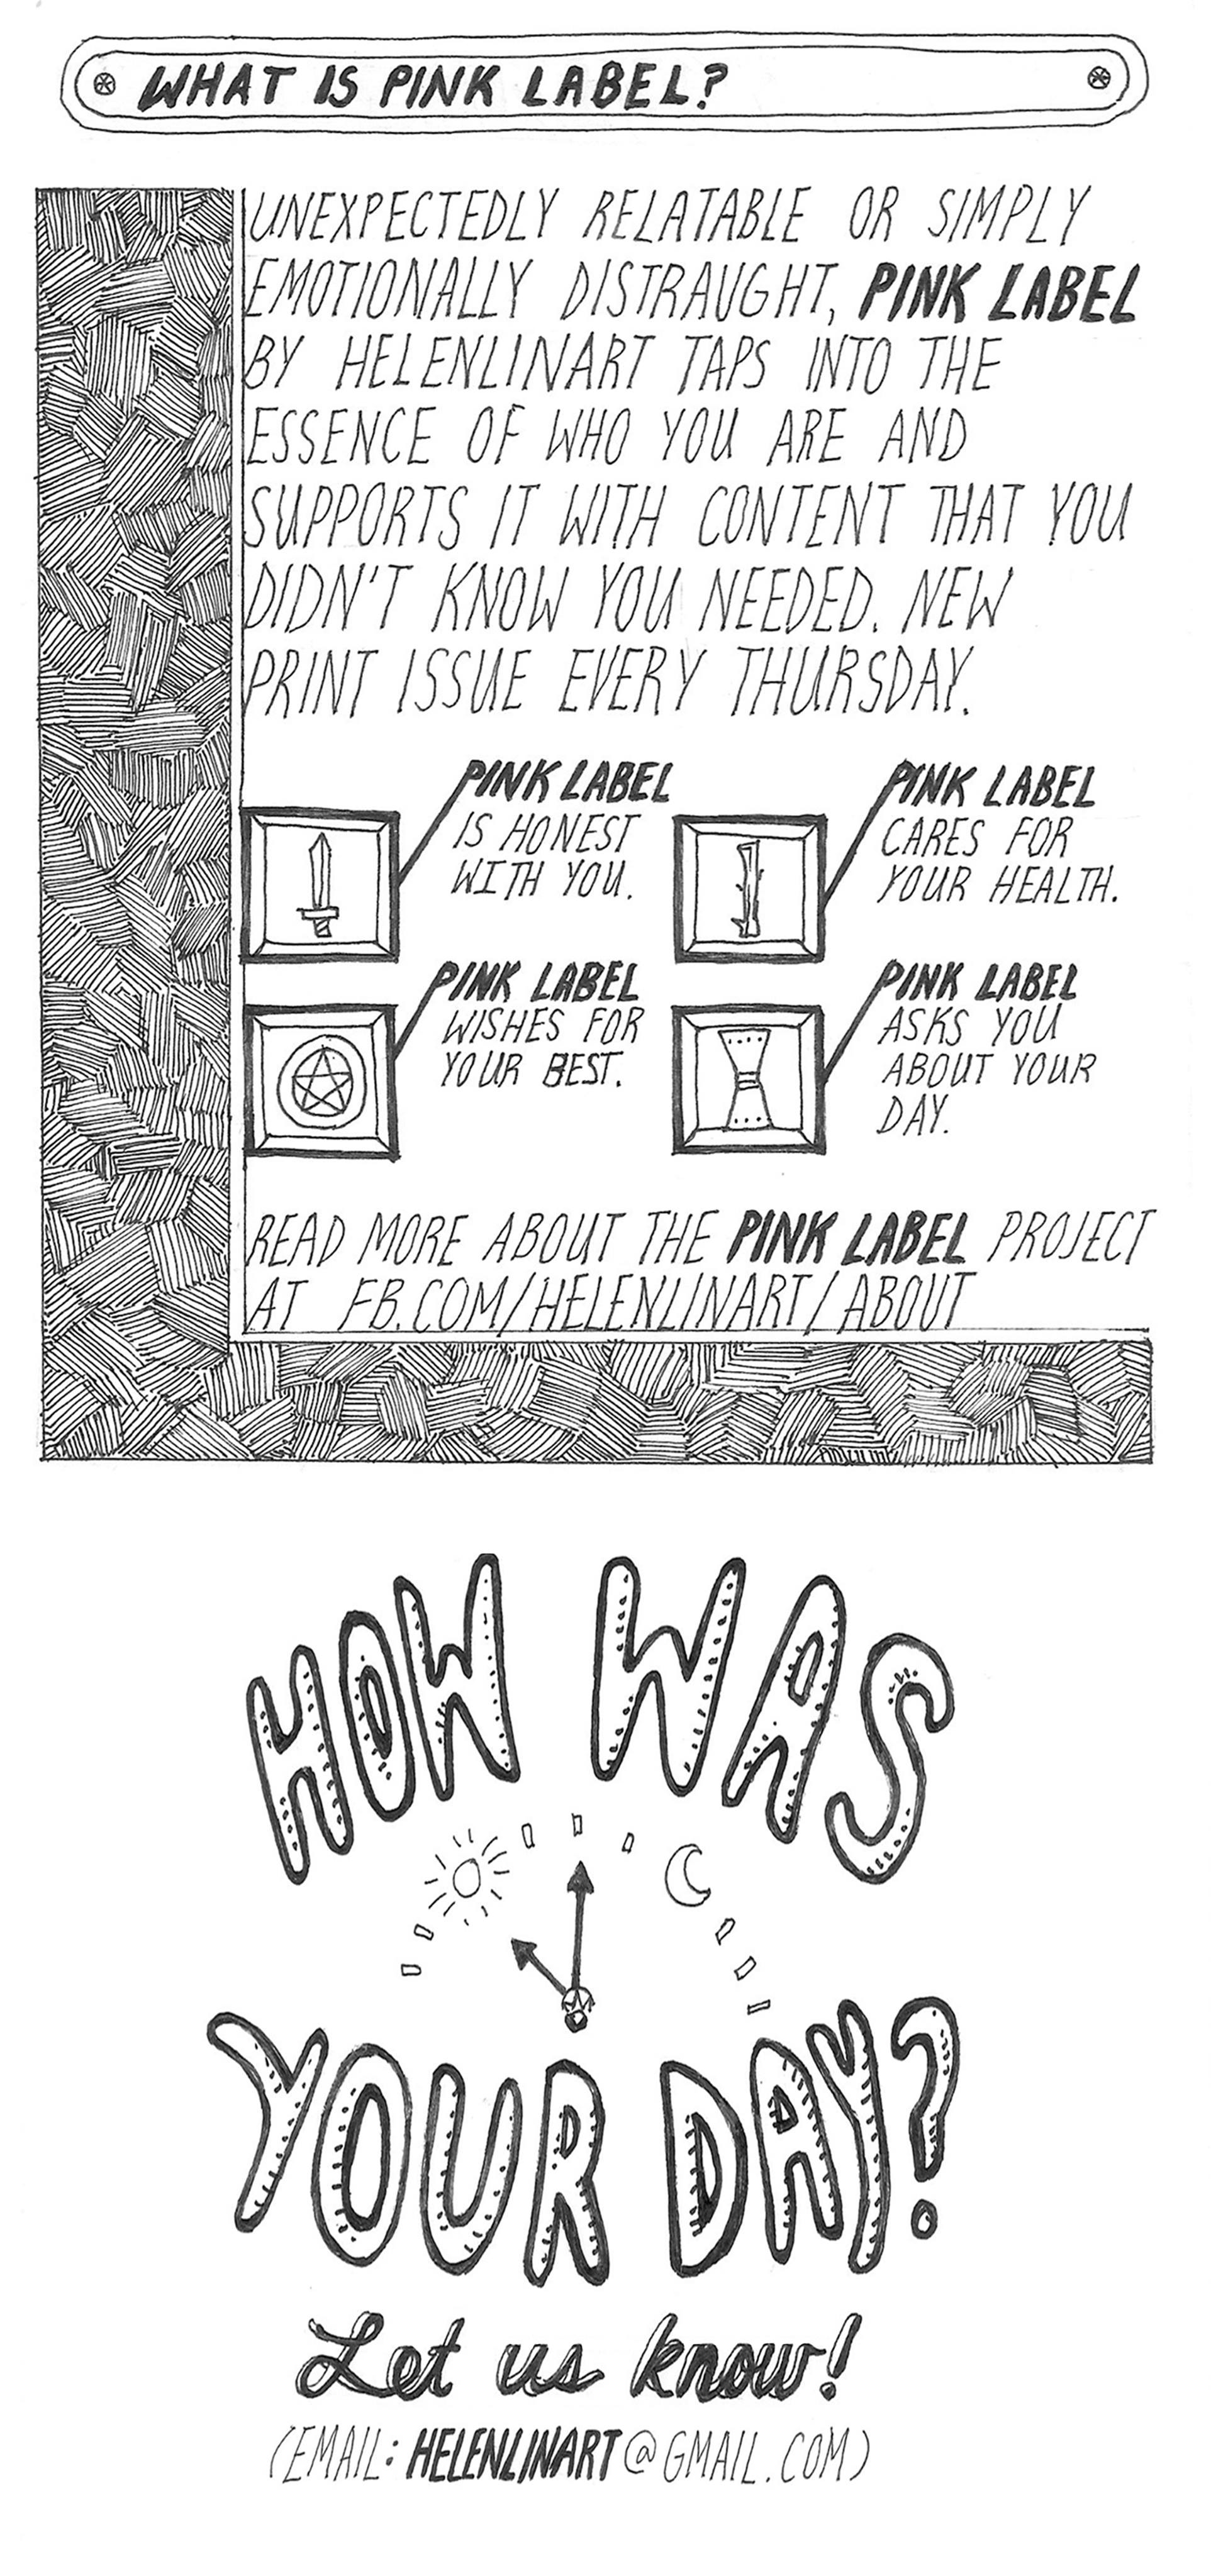 WHAT IS PINK LABEL?
UNEXPECTEDLY RELATABLE OR SIMPLY
EMOTIONALLY DISTRAUGHT, PINK LABEL
BY HELENLINART TAPS INTO THE
ESSENCE OF WHO YOU ARE AND
SUPPORTS IT WITH CONTENT THAT YOU
DIDN'T KNOW YOU NEEDED. NEW
PRINT ISSUE EVERY THURSDAY.
PINK LABEL
IS HONEST
WITH YOU.
PINK LABEL
CARES FOR
YOUR HEALTH.
PINK LABEL
WISHES FOR
YOUR BEST.
PINK LABEL
ASKS YOU
ABOUT YOUR
DAY.
READ MORE ABOUT THE PINK LABEL PROJECT
AT FB.COM/HELENLINART/ABOUT
HOW WAS
YOUR DAY?
Let us know!
(EMAIL: HELENLINART@GMAIL.COM)